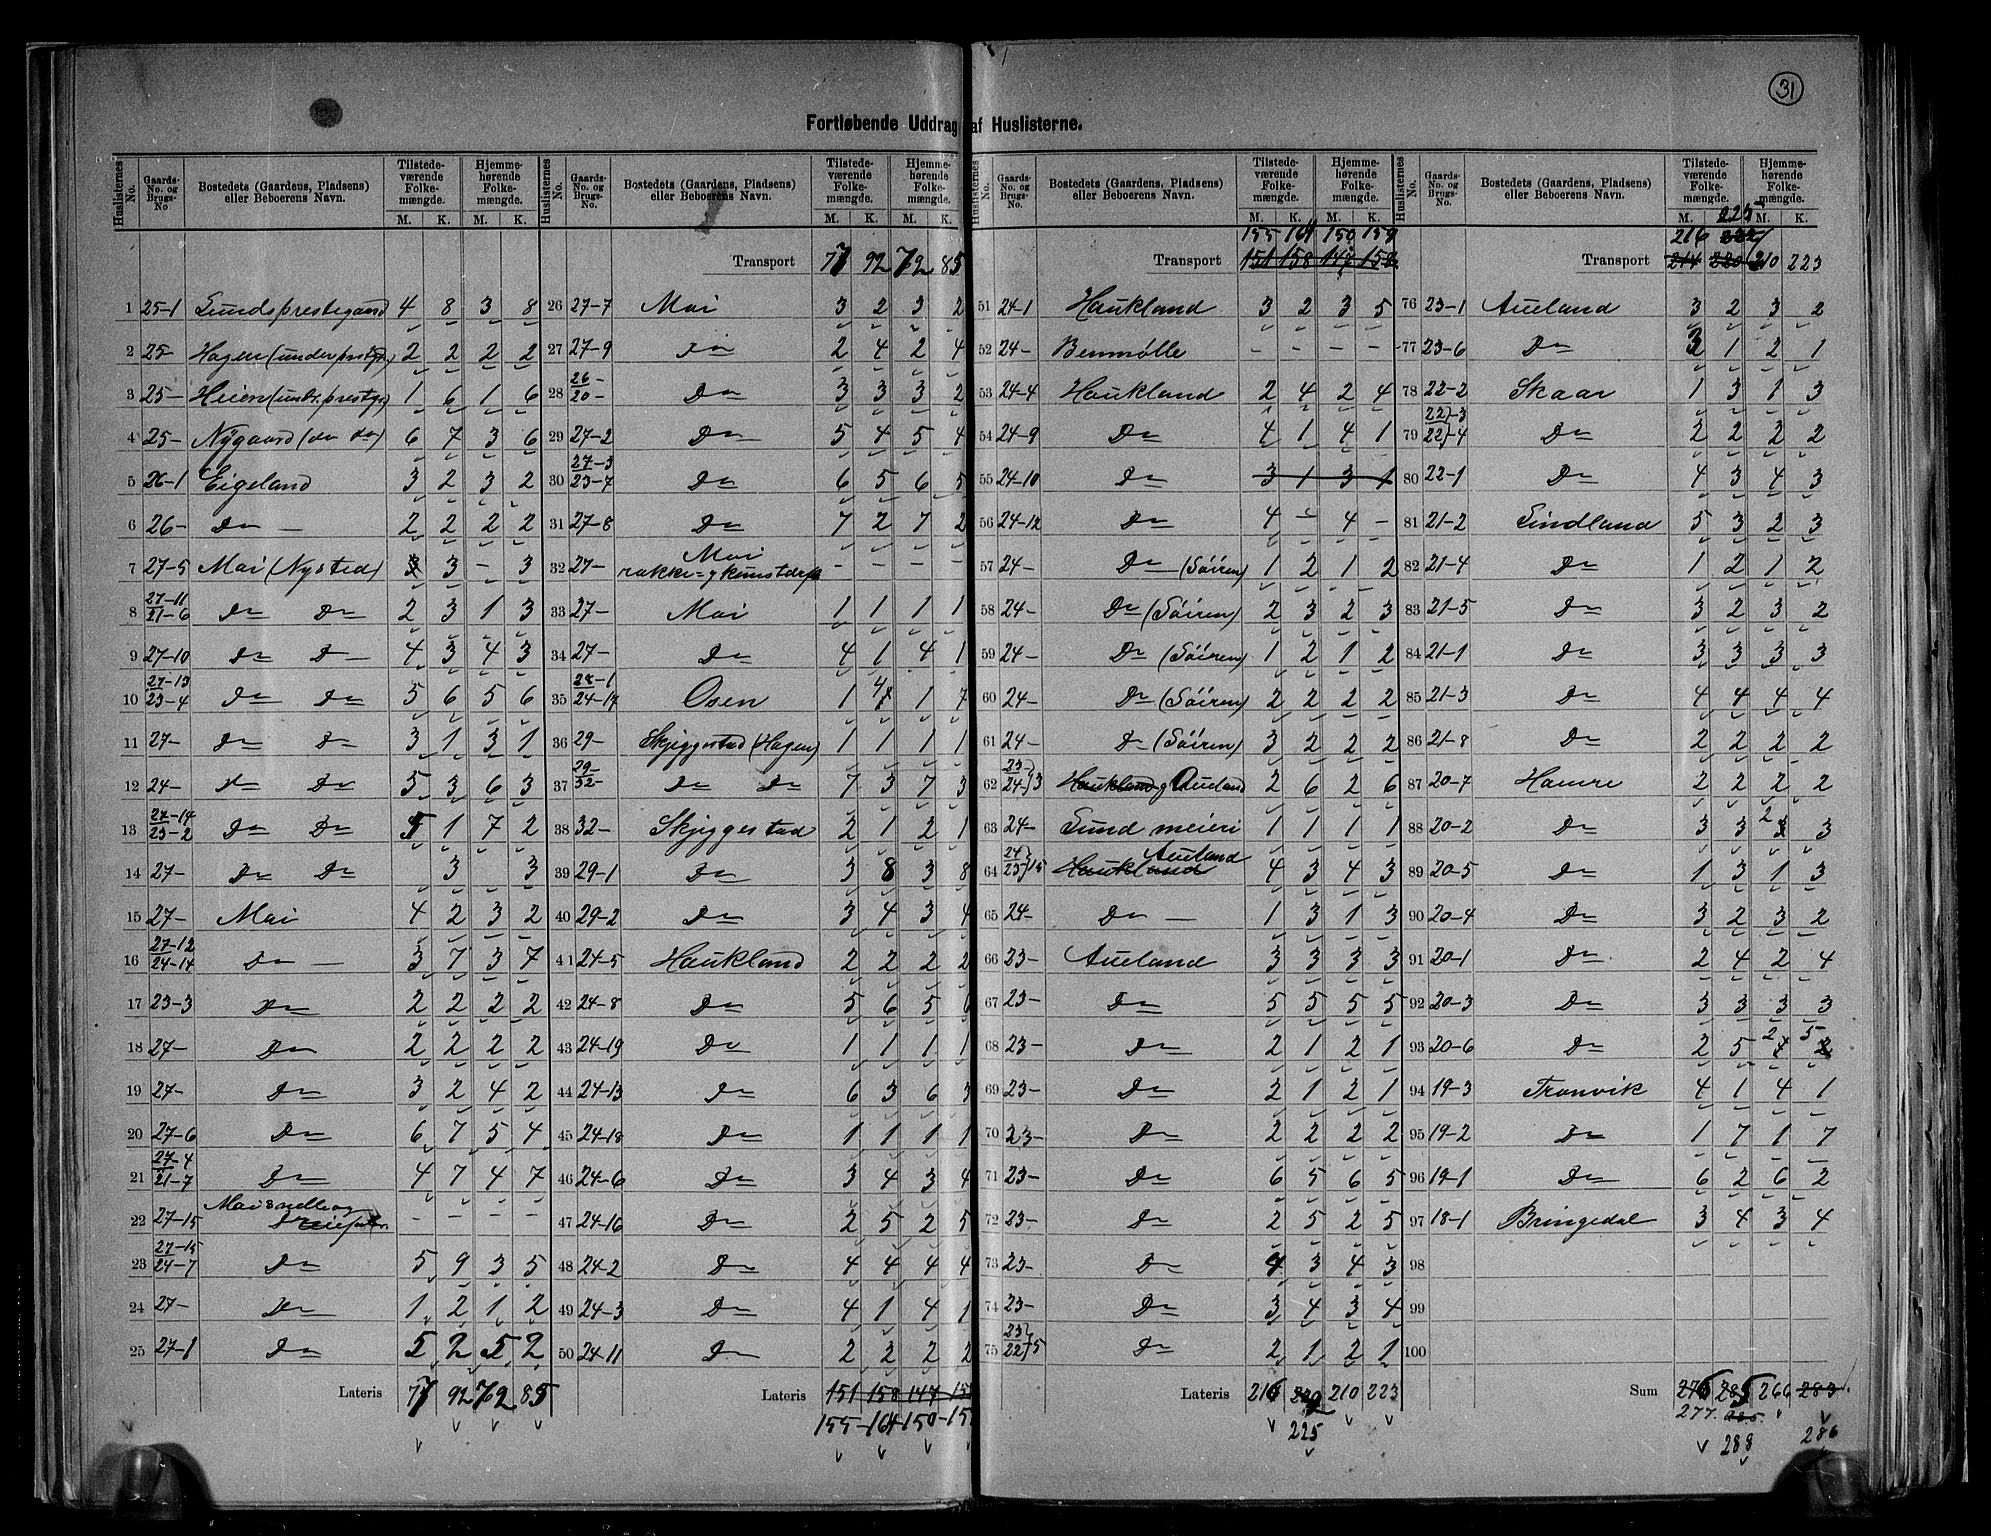 31
Fortløbende Uddrag af Huslisterne.
Huslisternes No. | Gaards- No. og Brugs- No. | Bostedets (Gaardens, Pladsens) eller Beboerens Navn. | Tilstede- værende Folke- mængde. M. K. | Hjemme- hørende Folke- mængde. M. K.
1 25-1 Lundsprestegaard 4 8 3 8
2 25- Hagen (under prstgr.) 2 2 2 2
3 25- Heien (undr. prestgr) 1 6 1 6
4 25- Nÿgaard (do do) 6 7 3 6
5 26-1 Eigeland 3 2 3 2
6 26- Do - 2 2 2 2
7 27-5 Moi (Nysted) 3 3 - 3
8 27-11 21-6 Do Do 2 3 1 3
9 27-10 Do Do 4 3 4 3
10 27-13 23-4 Do Do 5 6 5 6
11 27- Do Do 3 1 3 1
12 24- Do Do 5 3 6 3
13 27-14 23-2 Do Do 5 1 7 2
14 27- Do Do 3 3
15 27- Moi 4 2 3 2
16 27-12 24-14 Do - 3 7 3 7
17 23-3 Do 2 2 2 2
18 27- Do 2 2 2 2
19 27- Do 3 2 4 2
20 27-6 Do 6 7 5 4
21 27-4 21-7 Do 4 7 4 7
22 27-15 - - - -
23 27-15 24-7 Do 5 9 3 5
24 27- Do 1 2 1 2
25 27-1 Do 5 2 5 2
Lateris 77 92 72 85
Huslisternes No. | Gaards- No. og Brugs- No. | Bostedets (Gaardens, Pladsens) eller Beboerens Navn. | Tilstede- værende Folke- mængde. M. K. | Hjemme- hørende Folke- mængde. M. K.
Transport 77 92 72 85
26 27-7 Moi 3 2 3 2
27 27-9 Do 2 4 2 4
28 26- 20- Do 3 3 3 2
29 27-2 Do 5 4 5 4
30 27-3 23-7 Do 6 5 6 5
31 27-8 Do 7 2 7 2
32 27- Moi - - - -
33 27- Moi 1 1 1 1
34 27- Do 4 1 4 1
35 28-1 24-17 Osen 1 4 1 7
36 29- Skjiggestad (Hagen) 1 1 1 1
37 29- 32- Do Do 7 3 7 3
38 32- Skjiggestad 2 1 2 1
39 29-1 Do 3 8 3 8
40 29-2 Do 3 4 3 4
41 24-5 Haukland 2 2 2 2
42 24-8 Do 5 6 5 6
43 24-19 Do 1 1 1 1
44 24-13 Do 6 3 6 3
45 24-18 Do 1 1 1 1
46 24-6 Do 3 4 3 4
47 24-16 Do 2 5 2 5
48 24-2 Do 4 4 4 4
49 24-3 Do 4 1 4 1
50 24-11 Do 2 2 2 2
Lateris 151 158 147 15
155 - 164 - 150 - 15
Huslisternes No. | Gaards- No. og Brugs- No. | Bostedets (Gaardens, Pladsens) eller Beboerens Navn. | Tilstede- værende Folke- mængde. M. K. | Hjemme- hørende Folke- mængde. M. K.
155 164 150 159
Transport 151 158 147 158
51 24-1 Haukland 3 2 3 5
52 24- Benmølle - - - -
53 24-4 Haukland 2 4 2 4
54 24-9 Do 4 1 4 1
55 24-10 Do 3 1 3 1
56 24-12 Do 4 - 4 -
57 24- Do (Söiren) 1 2 1 2
58 24- Do (Söiren) 2 3 2 3
59 24- Do (Söiren) 1 2 1 2
60 24- Do (Söiren) 2 2 2 2
61 24- Do (Söiren) 3 2 2 2
62 23- 24- }3 Haukland g Aueland 2 6 2 6
63 24- Lund meieri 1 1 1 1
64 24 23 }15 Haukland Aueland 4 3 4 3
65 24- Do - 1 3 1 3
66 23- Aueland 3 3 3 3
67 23- Do 5 5 5 5
68 23- Do 2 1 2 1
69 23- Do 2 1 2 1
70 23- Do 2 2 2 2
71 23- Do 6 5 6 5
72 23- Do 2 5 2 5
73 23- Do 4 3 4 3
74 23- Do 3 4 3 4
75 23 22 }5 Do 2 1 2 1
Lateris 216 222 210 223
225
Huslisternes No. | Gaards- No. og Brugs- No. | Bostedets (Gaardens, Pladsens) eller Beboerens Navn. | Tilstede- værende Folke- mængde. M. K. | Hjemme- hørende Folke- mængde. M. K.
225
216 222
Transport 214 220 210 223
76 23-1 Aueland 3 2 3 2
77 23-6 Do 3 1 2 1
78 22-2 Skaar 1 3 1 3
79 22-3 22-4 Do 2 2 2 2
80 22-1 Do 4 3 4 3
81 21-2 Lindland 5 3 2 3
82 21-4 Do 1 2 1 2
83 21-5 Do 3 2 3 2
84 21-1 Do 3 3 3 3
85 21-3 Do 4 4 4 4
86 21-8 Do 2 2 2 2
87 20-7 Hamre 2 2 2 2
88 20-2 Do 3 3 2 3
89 20-5 Do 1 3 1 3
90 20-4 Do 3 2 3 2
91 20-1 Do 2 4 2 4
92 20-3 Do 3 3 3 3
93 20-6 Do 2 5 2 5
94 19-3 Tronvik 4 1 4 1
95 19-2 Do 1 7 1 7
96 19-1 Do 6 2 6 2
97 18-1 Bringedal 3 4 3 4
98
99
100
Sum 276 285 266 283
277. 285.
288 286